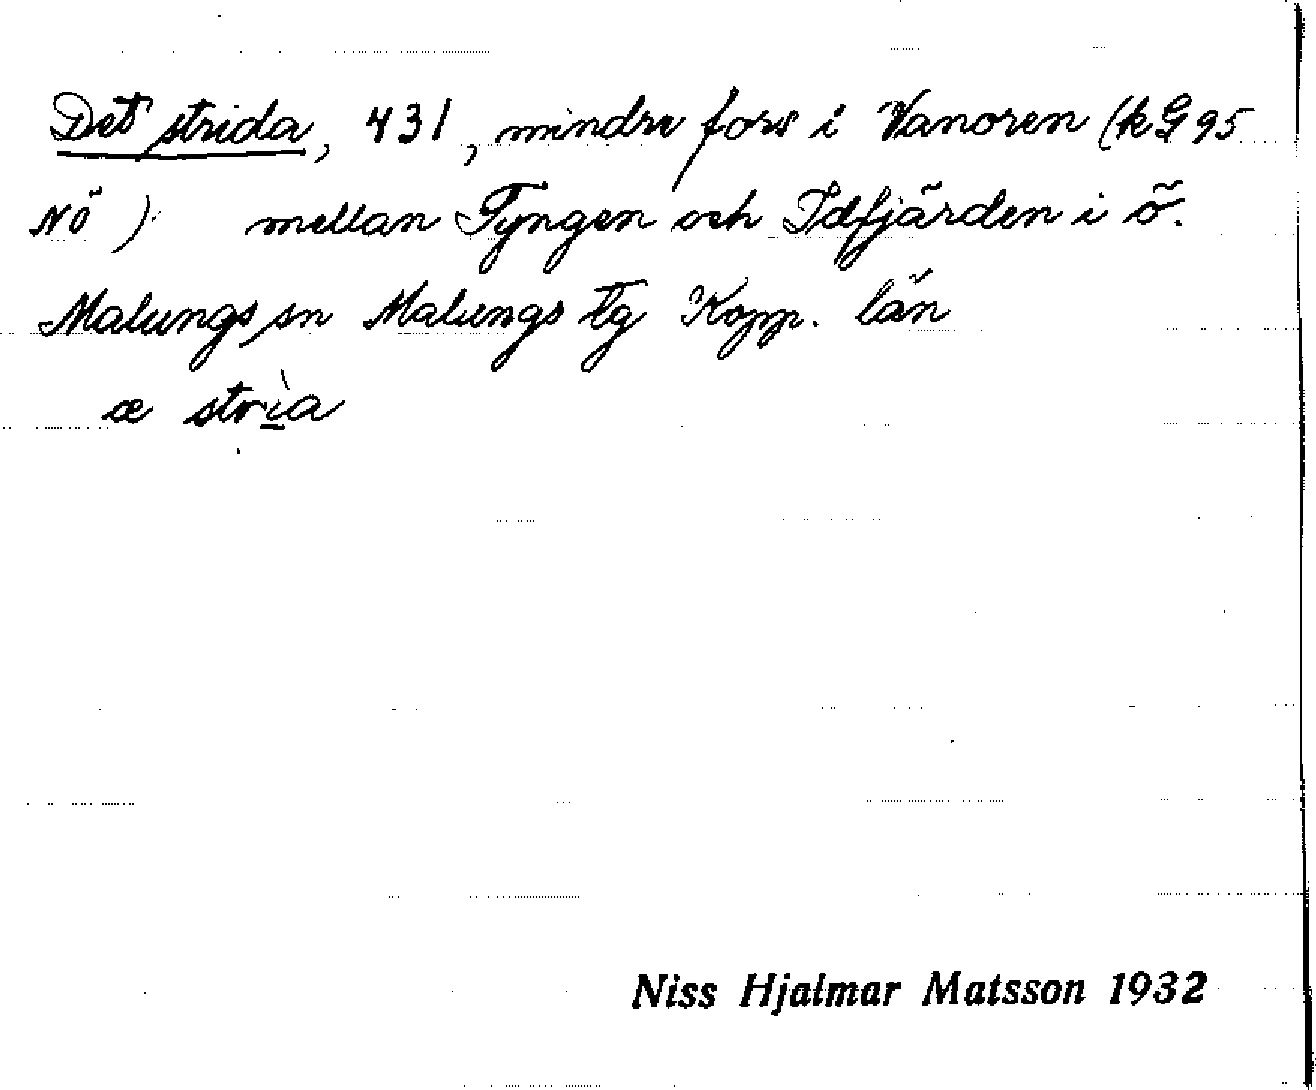 Det strida, 431, mindre fors i Vanoren (k G 95
NÖ) mellan Tyngen och Idfjärden i ö.
Malungs sn Malungs tg Kopp. län
æ strìa
Niss Hjalmar Matsson 1932